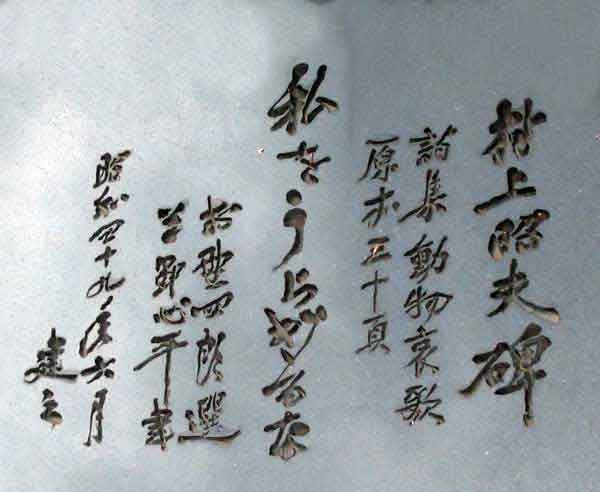 村上昭夫碑
詩集動物哀歌
原本五十頁
私をうらぎるな
村野四郎選
草野心平書
昭和四十九年六月
建之